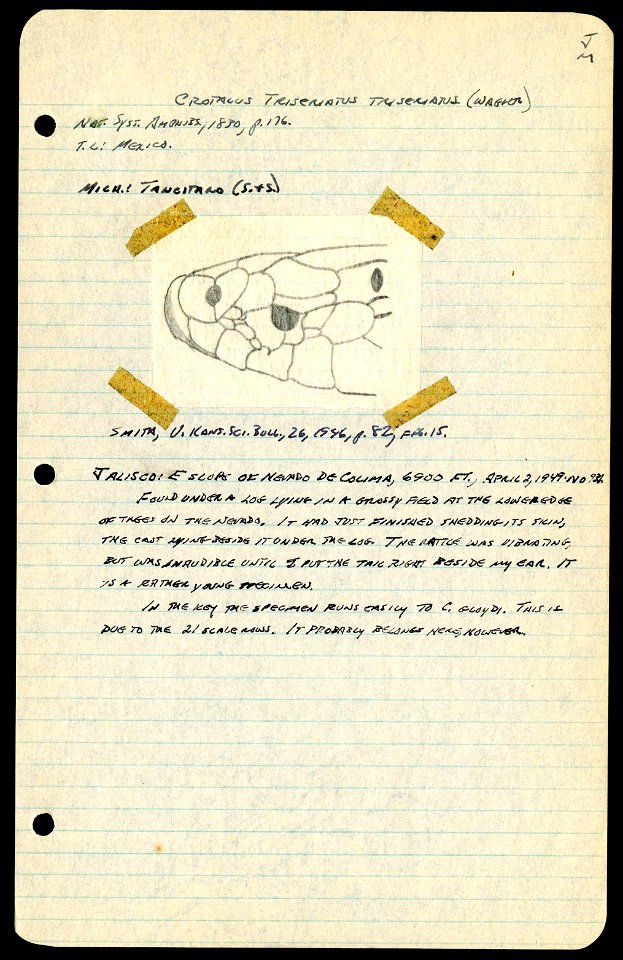 J
M
CROTALUS TRISERIATUS TRISERIATUS (WAGLER)
NAT. SYST. AMPHIB., 1830, p. 176.
T.L.: MEXICO.
MICH.: TANCITARO (S.&S.)
SMITH, U. KANS. SCI. BULL., 26, 1946, p. 82, FIG. 15.
JALISCO: E SLOPE OF NEVADO DE COLIMA, 6900 FT., APRIL 2, 1949. NO
FOUND UNDER A LOG LYING IN A GRASSY FIELD AT THE LOWER EDGE
OF TREES ON THE NEVADO. IT HAD JUST FINISHED SHEDDING ITS SKIN,
THE CAST LYING BESIDE IT UNDER THE LOG. THE RATTLE WAS VIBRATING,
BUT WAS INAUDIBLE UNTIL I PUT THE TAIL RIGHT BESIDE MY EAR. IT
IS A RATHER YOUNG SPECIMEN.
IN THE KEY THE SPECIMEN RUNS EASILY TO C. GLOYDI. THIS IS
DUE TO THE 21 SCALE ROWS. IT PROBABLY BELONGS HERE, HOWEVER.